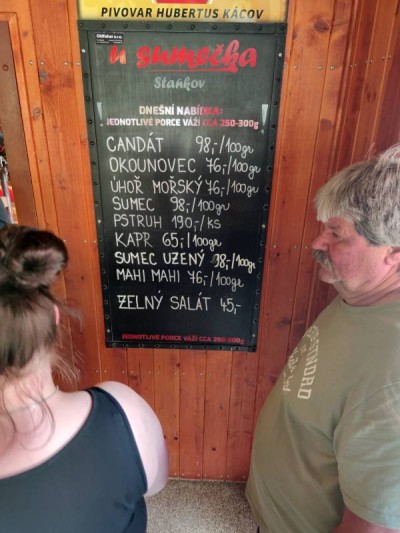 PIVOVAR HUBERTUS KÁCOV
u sumečka
Staňkov
DNEŠNÍ NABÍDKA:
JEDNOTLIVÉ PORCE VÁŽÍ CCA 250-300g
CANDÁT 98,-/100gr
OKOUNOVEC 76,-/100gr
ÚHOŘ MOŘSKÝ 76,-/100gr
SUMEC 98,-/100gr
PSTRUH 190,-/KS
KAPR 65,-/100gr
SUMEC UZENÝ 98,-/100gr
MAHI MAHI 76,-/100gr
ZELNÝ SALÁT 45,-
JEDNOTLIVÉ PORCE VÁŽÍ CCA 250-300g